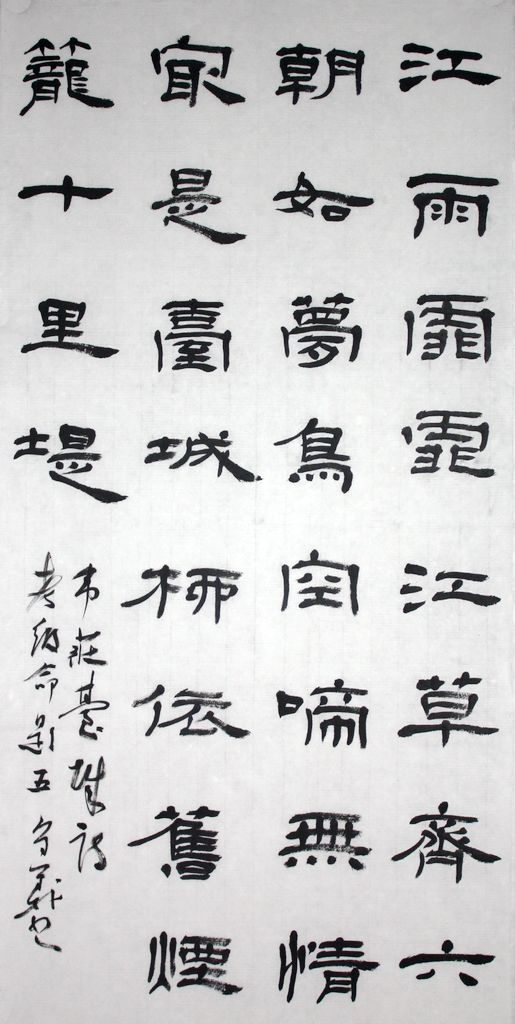 江雨霏霏江草齊六
朝如夢鳥空啼無情
冣是臺城柳依舊煙
籠十里堤
韦莊臺城詩
考級命題五